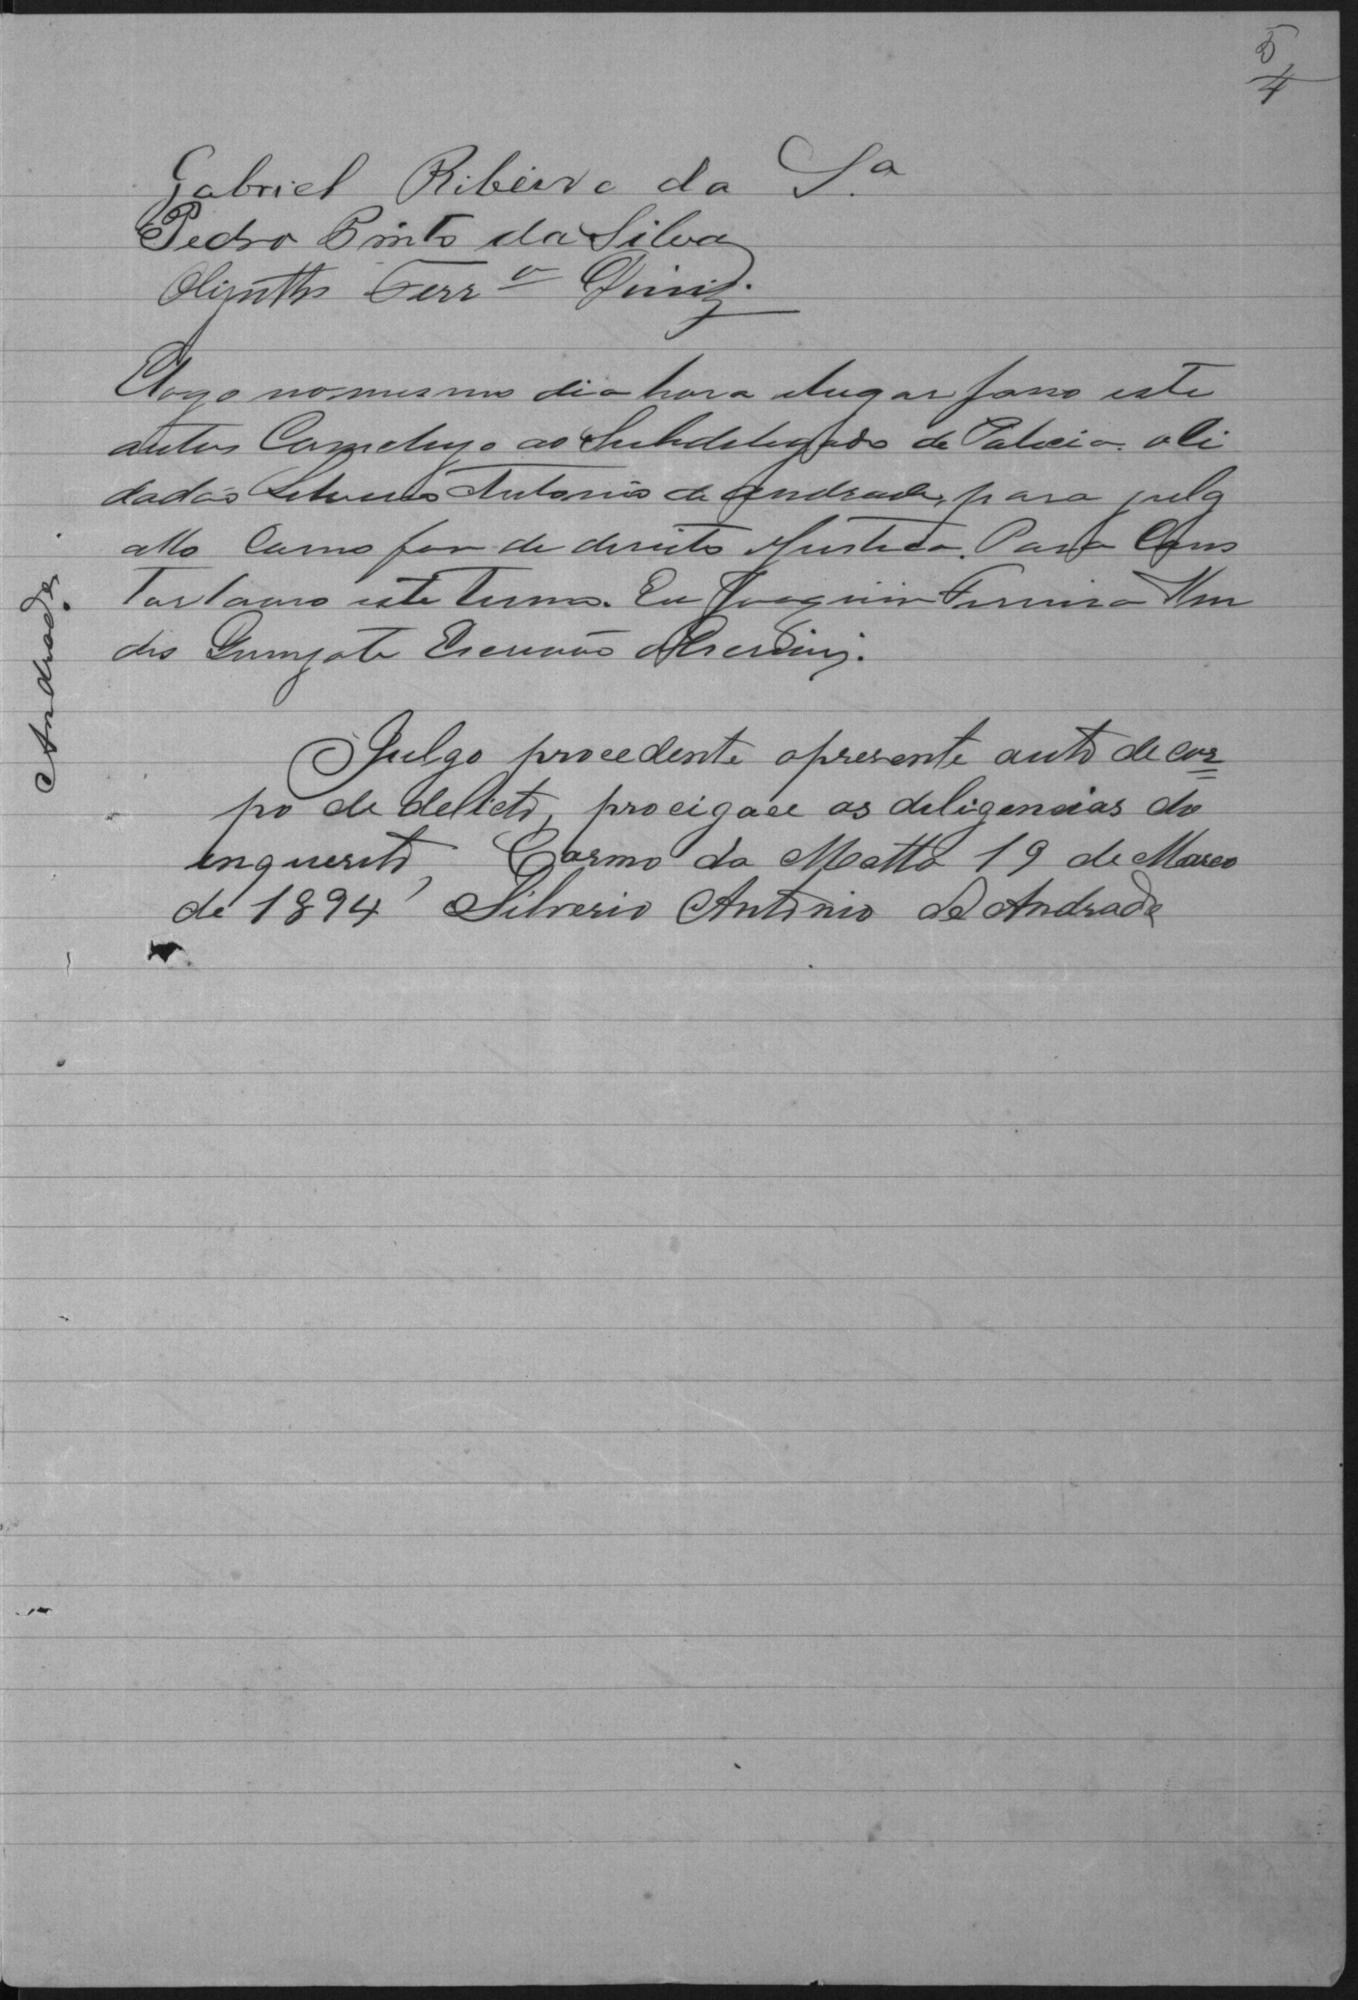 5
4
Gabriel Ribeiro da S.ª
Pedro Pinto da Silva
Olyntho Ferrª Diniz
Elogo nomesmo dia hora elugar fasso este
autos ao Subdelegado de Policia o Ci
dadão Silverio Antonio de Andrade, para julg
allo Como for de direito eJustica. Para Cons
tar lavro este termo. Eu Joaquim Ferreira Men
des Escrivão oEscrevi.
Andrade
Julgo procedente opresente auto de cor=
po de delicto, procigace as deligencias do
inquerito, Carmo da Matta 19 de Março
de 1894 Silverio Antonio de Andrade